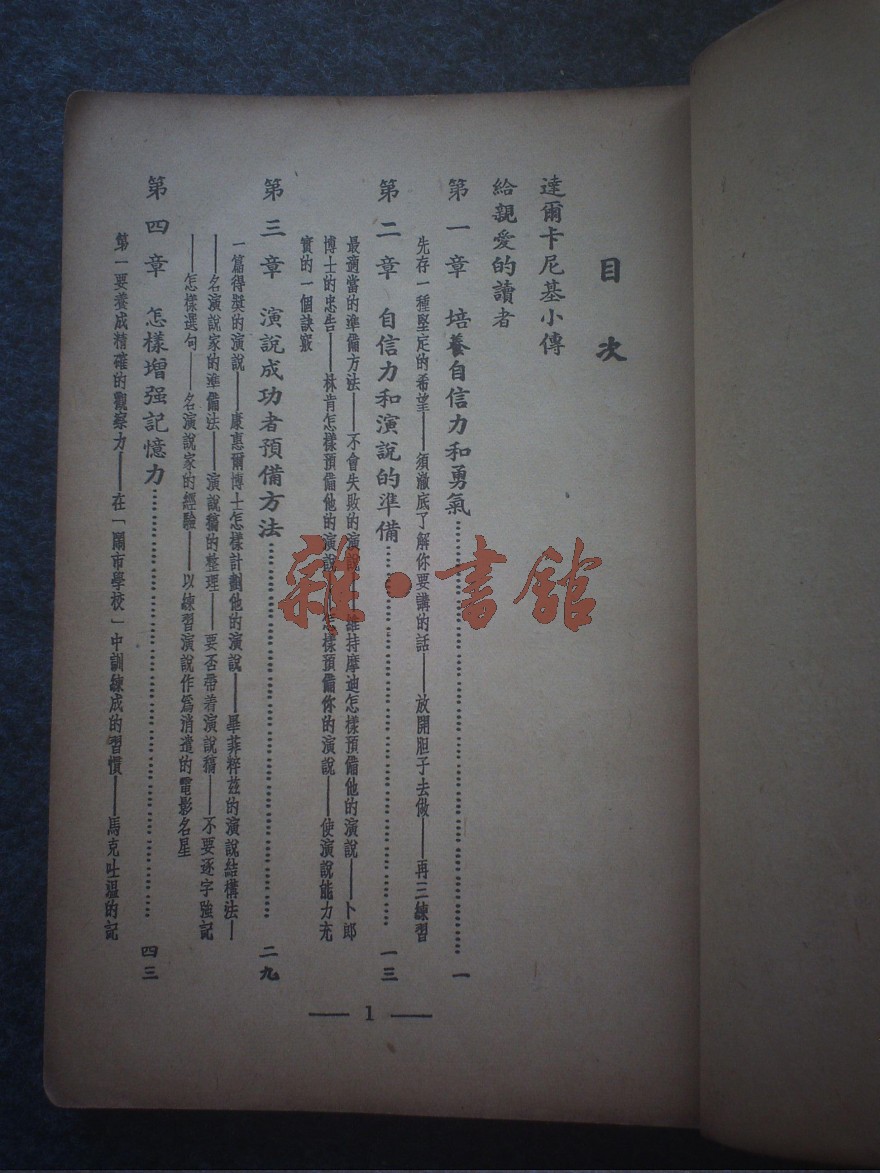 目次
達爾卡尼基小傳
給親愛的讀者
第一章 培養自信力和勇氣……一
先存一種堅定的希望——須澈底了解你要講的話——放開胆子去做——再三練習
第二章 自信力和演說的準備……一三
最適當的準備方法——不會失敗的演說——維持摩迪怎樣預備他的演說——卜郎
博士的忠告——林肯怎樣預備他的演說——怎樣預備你的演說——使演說能力充
實的一個訣竅
第三章 演說成功者預備方法……二九
一篇得獎的演說——康惠爾博士怎樣計劃他的演說——畢菲粹茲的演說結構法—
—名演說家的準備法——演說稿的整理——要否帶着演說稿——不要逐字強記
——怎樣選句——名演說家的經驗——以練習演說作爲消遣的電影名星
第四章 怎樣增强記憶力……四三
第一要養成精確的觀察力——在「鬧市學校」中訓練成的習慣——馬克吐溫的記
— 1 —
雜·書館